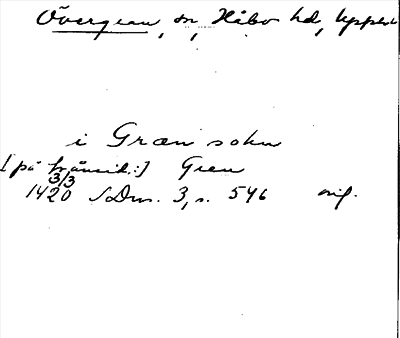 Övergran, sn, Håbo hd, Uppl
i Græn sokn
[på frånsid.:] Gren
3/3
1420 SDns. 3, s. 546 orig.